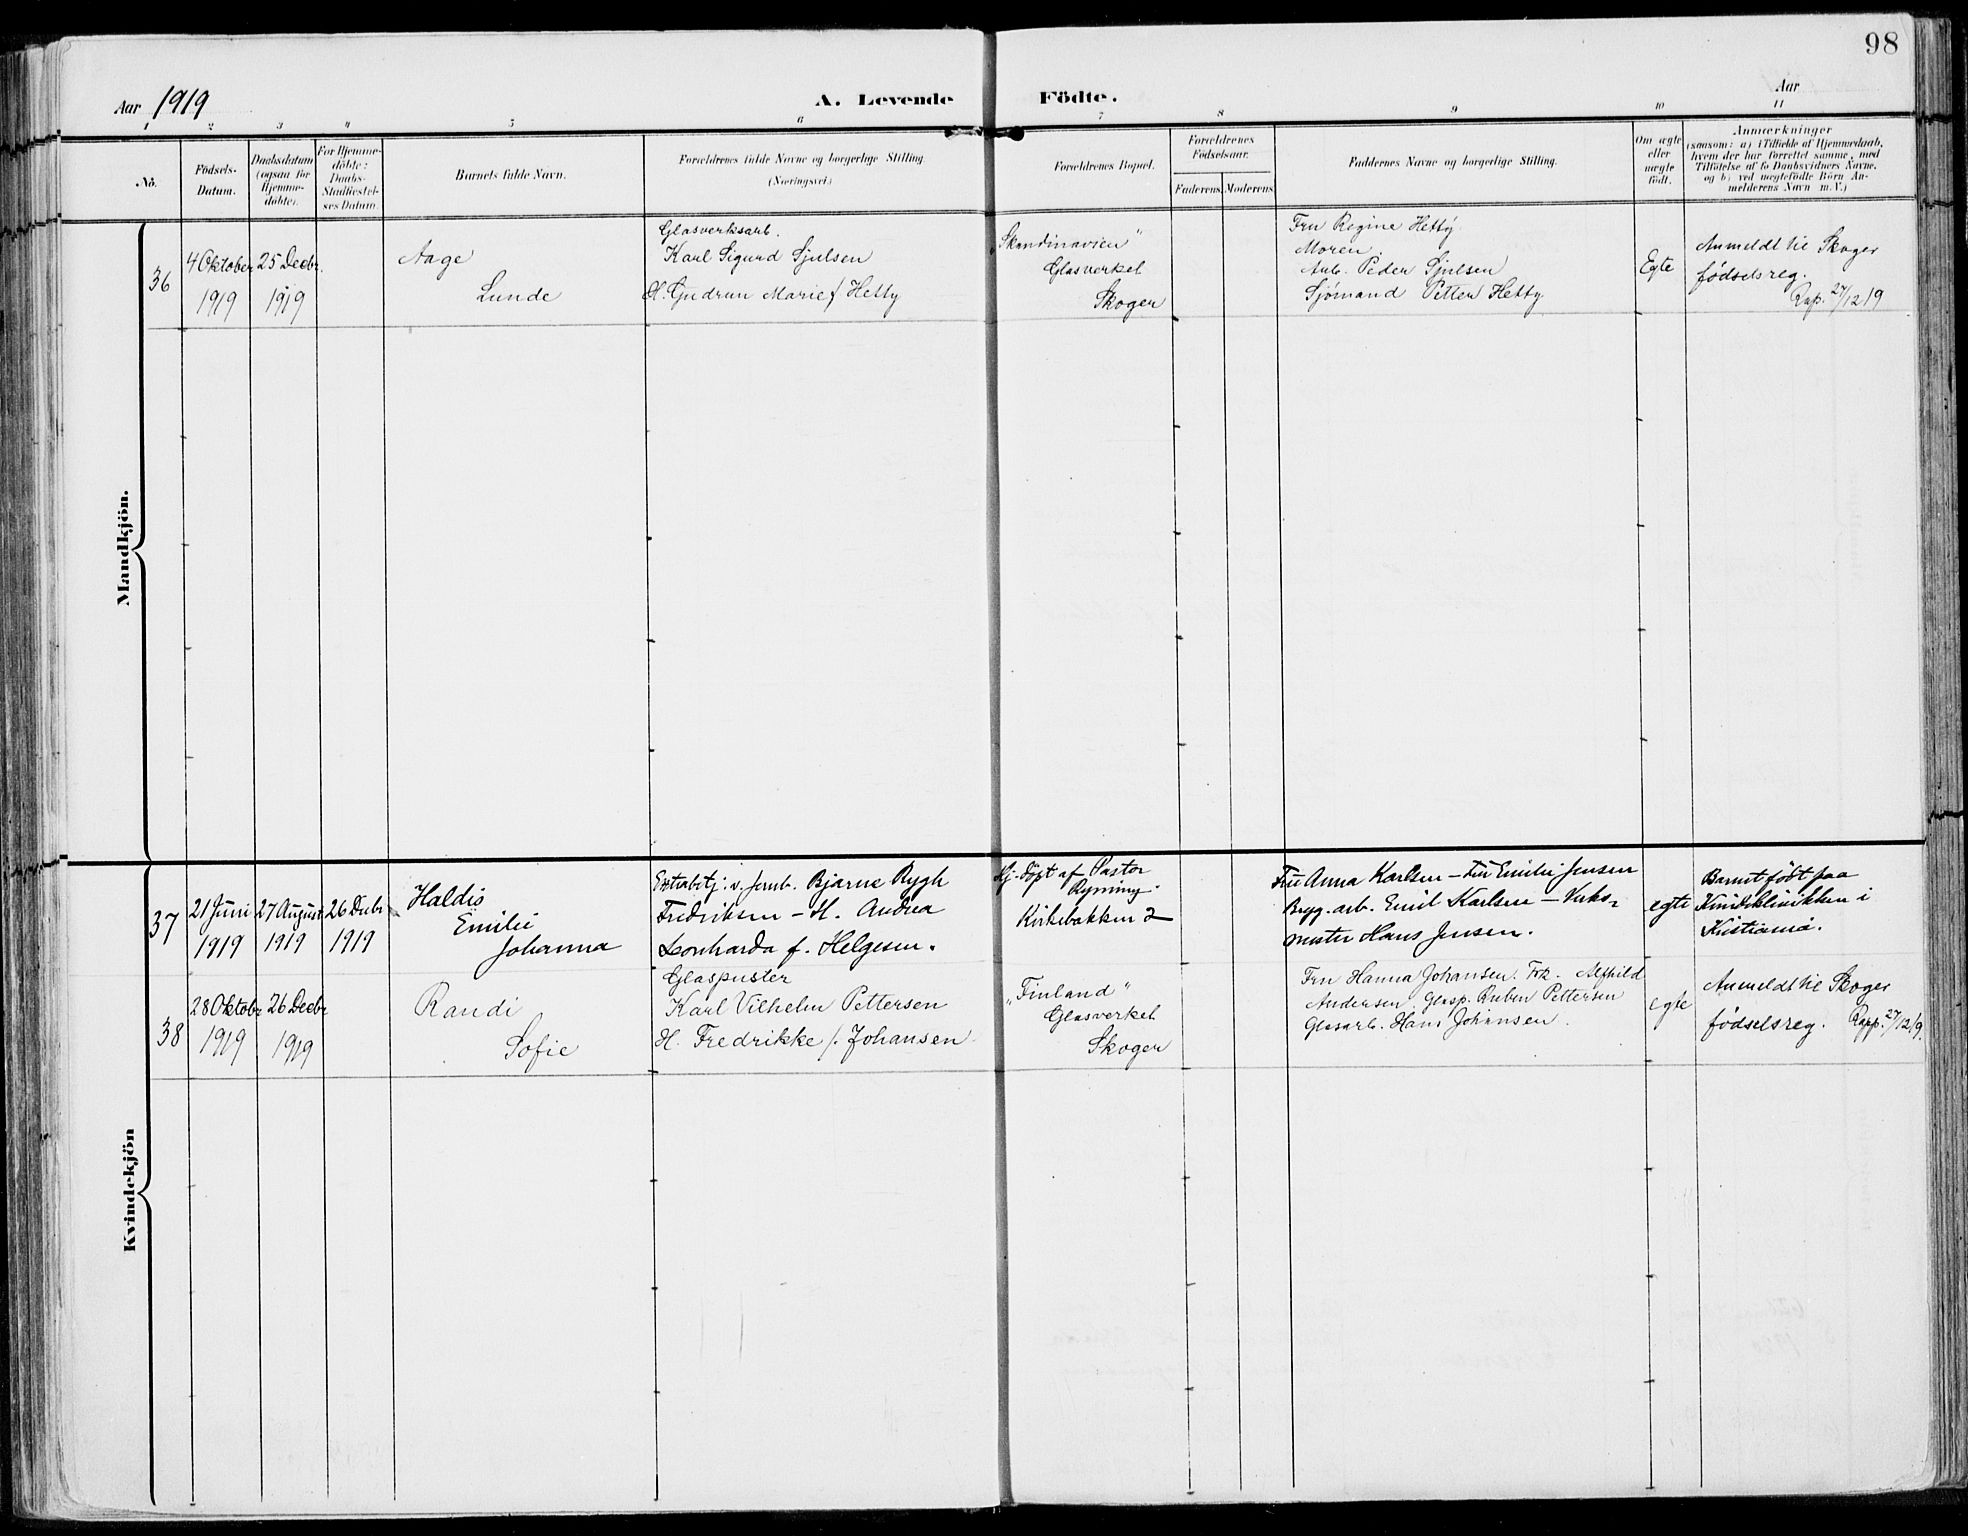 98
Aar 1919
A. Levende Födte.
Aar
1 2 3 4 5 6 7 8 9 10 11
No.
Födsels-
Datum.
Daabsdatum
(ogsaa for
Hjemme-
döbte).
For Hjemme-
döbte:
Daabs-
Stadfæstel-
ses Datum.
Barnets fulde Navn.
Forældrenes fulde Navne og borgerlige Stilling.
(Næringsvei.)
Forældrenes Bopæl.
Forældrenes
Födselsaar.
Faderens. Moderens.
Faddernes Navne og borgerlige Stilling.
Om ægte
eller
uægte
födt.
Anmærkninger
(saasom: a) i Tilfælde af Hjemmedaab,
hvem der har forrettet samme, med
Tilföielse af to Daabsvidners Navne,
og b) ved uægtefödte Börn An-
melderens Navn m. V.)
Mandkjön.
36
4 Oktober
1919
25 Decbr.
1919
Aage
Lunde
Glasverksarb.
Karl Sigurd Sjulsen
H. Gudrun Marie f Hetty
"Skandinavien"
Glasverket
Skoger
Fru Regine Hetty
Moren
Arb. Peder Sjulsen
Sjömand Petter Hetty
Egte
Anmeldt til Skoger
fødselsreg.
Rap. 27/12 19
Kvindekjön
37
21 Juni
1919
27 August
1919
26 Decbr
1919
Haldis
Emilie
Johanna
Extrabetj. v. Jernb. Bjarne Rygh
Fredriksen – H. Andrea
Leonharda f. Helgesen.
Hj. döpt af Pastor
Ryning.
Kirkebakken 2
Fru Anna Karlsen – Fru Emilie Jensen
Bryg. arb. Emil Karlsen – Verks-
mester Hans Jensen.
egte
Barnet født paa
Kvindeklinikken i
Kristiania.
38
28 Oktobr
1919
26 Decbr
1919
Randi
Sofie
Glaspuster
Karl Vilhelm Pettersen
H. Fredrikke f. Johansen
"Finland"
Glasverket
Skoger
Fru Hanna Johansen. Frk. Alfhild
Andersen, Glasp. Ruben Pettersen
Glasarb. Hans Johansen.
egte
Anmeldt til Skoger
fødselsreg. Rapp. 27/12 19.